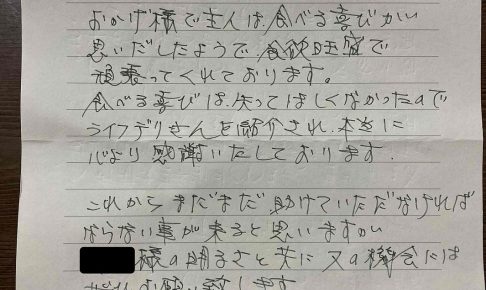 おかげ様で主人は、食べる喜びがい
思いだしたようで、食欲旺盛で
頑張ってくれております。
食べる喜びは、失ってほしくなかったので
ライフデリさんを紹介され、本当に
心より感謝いたしております。
これからまだまだ助けていただなければ
ならない事が来ると思いますが
様の明るさと共に又の機会には
ぜひお願い致します